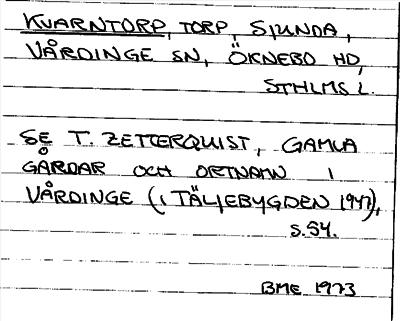 KVARNTORP, TORP, SJUNDA,
VÅRDINGE SN, ÖKNEBO HD,
STHLMS L.
SE T. ZETTERQUIST, GAMLA
GÅRDAR OCH ORTNAMN I
VÅRDINGE (I TÄLJEBYGDEN 1947),
S. 54.
BME 1973